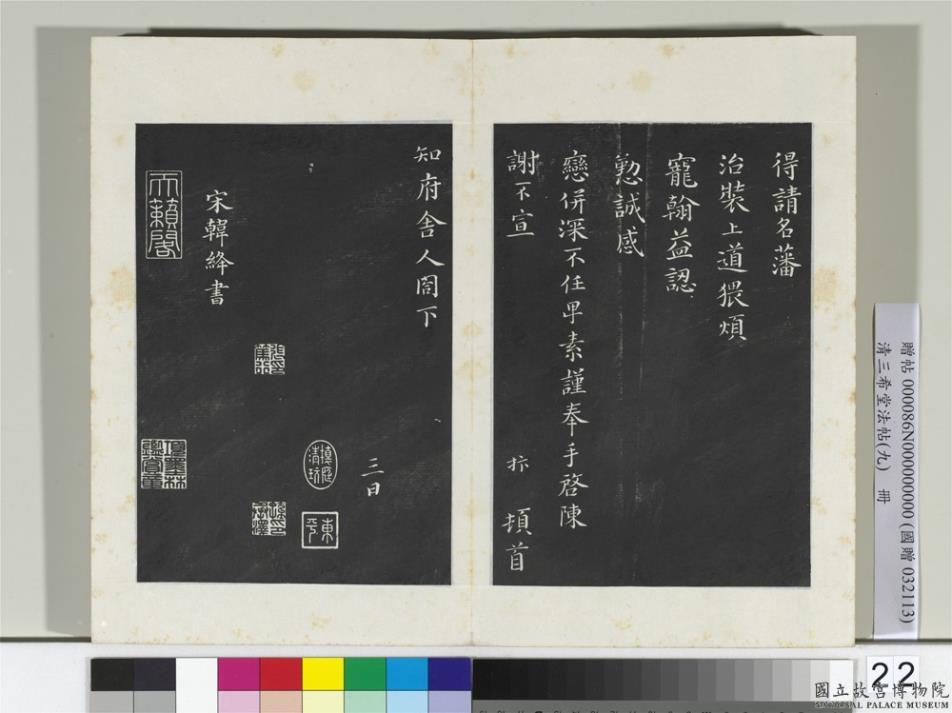 得請名藩
治裝上道猥煩
寵翰益認
懃誠感
戀併深不任早素謹奉手啓陳
謝不宣
頓首
知府舍人閤下
三日
宋韓絳書
天籟閣
贈帖 000086N000000000 (國贈 032113)
清三希堂法帖(九) 冊
22
國立故宮博物院
NATIONAL PALACE MUSEUM